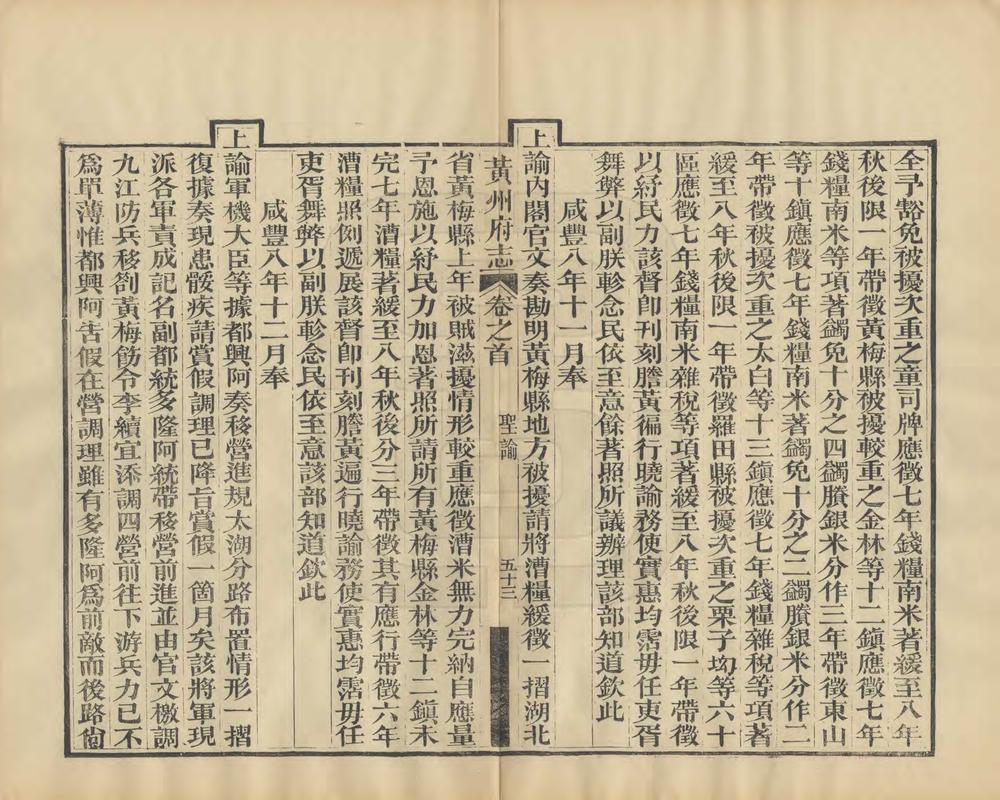 全予豁免被擾次重之童司牌應徵七年錢糧南米著緩至八年
秋後限一年帶徵黃梅縣被擾較重之金林等十二鎮應徵七年
錢糧南米等項著蠲免十分之四蠲賸銀米分作三年帶徵東山
等十鎮應徵七年錢糧南米著蠲免十分之二蠲賸銀米分作二
年帶徵被擾次重之太白等十三鎮應徵七年錢糧雜稅等項著
緩至八年秋後限一年帶徵羅田縣被擾次重之栗子㘭等六十
區應徵七年錢糧南米雜稅等項著緩至八年秋後限一年帶徵
以紓民力該督卽刊刻謄黃徧行曉諭務使實惠均霑毋任吏胥
舞弊以副朕軫念民依至意餘著照所議辦理該部知道欽此
咸豐八年十一月奉
上諭內閣官文奏勘明黃梅縣地方被擾請將漕糧緩徵一摺湖北
黃州府志 卷之首 聖諭 五十三
省黃梅縣上年被賊滋擾情形較重應徵漕米無力完納自應量
予恩施以紓民力加恩著照所請所有黃梅縣金林等十二鎮未
完七年漕糧著緩至八年秋後分三年帶徵其有應行帶徵六年
漕糧照例遞展該督卽刊刻謄黃遍行曉諭務使實惠均霑毋任
吏胥舞弊以副朕軫念民依至意該部知道欽此
咸豐八年十二月奉
上諭軍機大臣等據都興阿奏移營進規太湖分路布置情形一摺
復據奏現患骽疾請賞假調理已降旨賞假一箇月矣該將軍現
派各軍責成記名副都統多隆阿統帶移營前進並由官文檄調
九江防兵移劄黃梅飭令李續宜添調四營前往下游兵力已不
爲單薄惟都興阿吿假在營調理雖有多隆阿爲前敵而後路尙